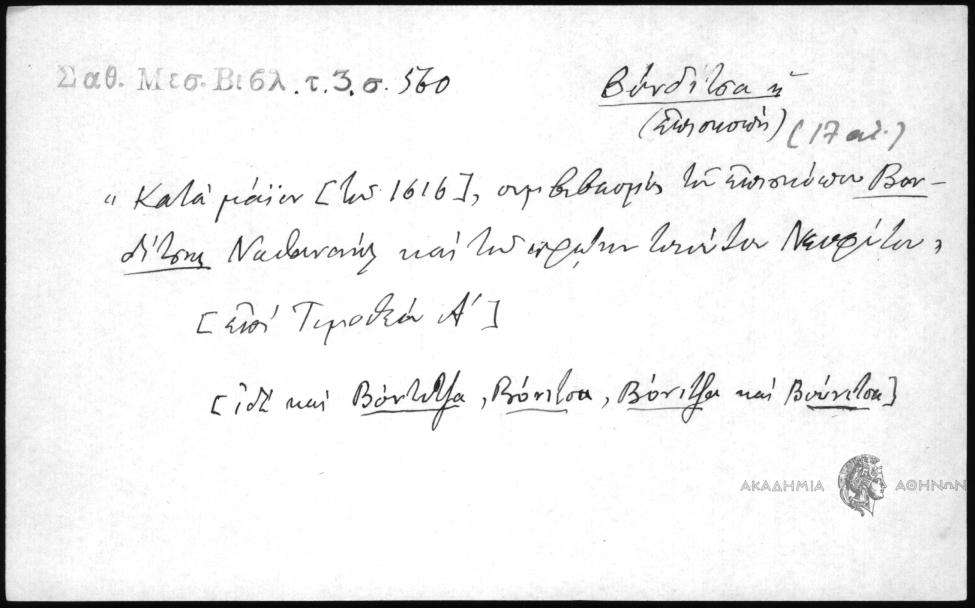 Σαθ. Μεσ. Βιβλ. τ. 3. σ. 560
Βόνδιτσα ἡ
(Ἐπισκοπὴ) (17 αἰ.)
"Κατὰ μάϊον [τοῦ 1616], συμβιβασμὸς τοῦ ἐπισκόπου Βον-
δίτσης Ναθαναὴλ καὶ τοῦ πρώην τοιούτου Νεοφύτου"
[ἐπὶ Τιμοθέου Α΄]
[ἰδὲ καὶ Βόντιτζα, Βόνιτσα, Βόνιτζα καὶ Βούνιτσα]
ΑΚΑΔΗΜΙΑ ΑΘΗΝΩΝ